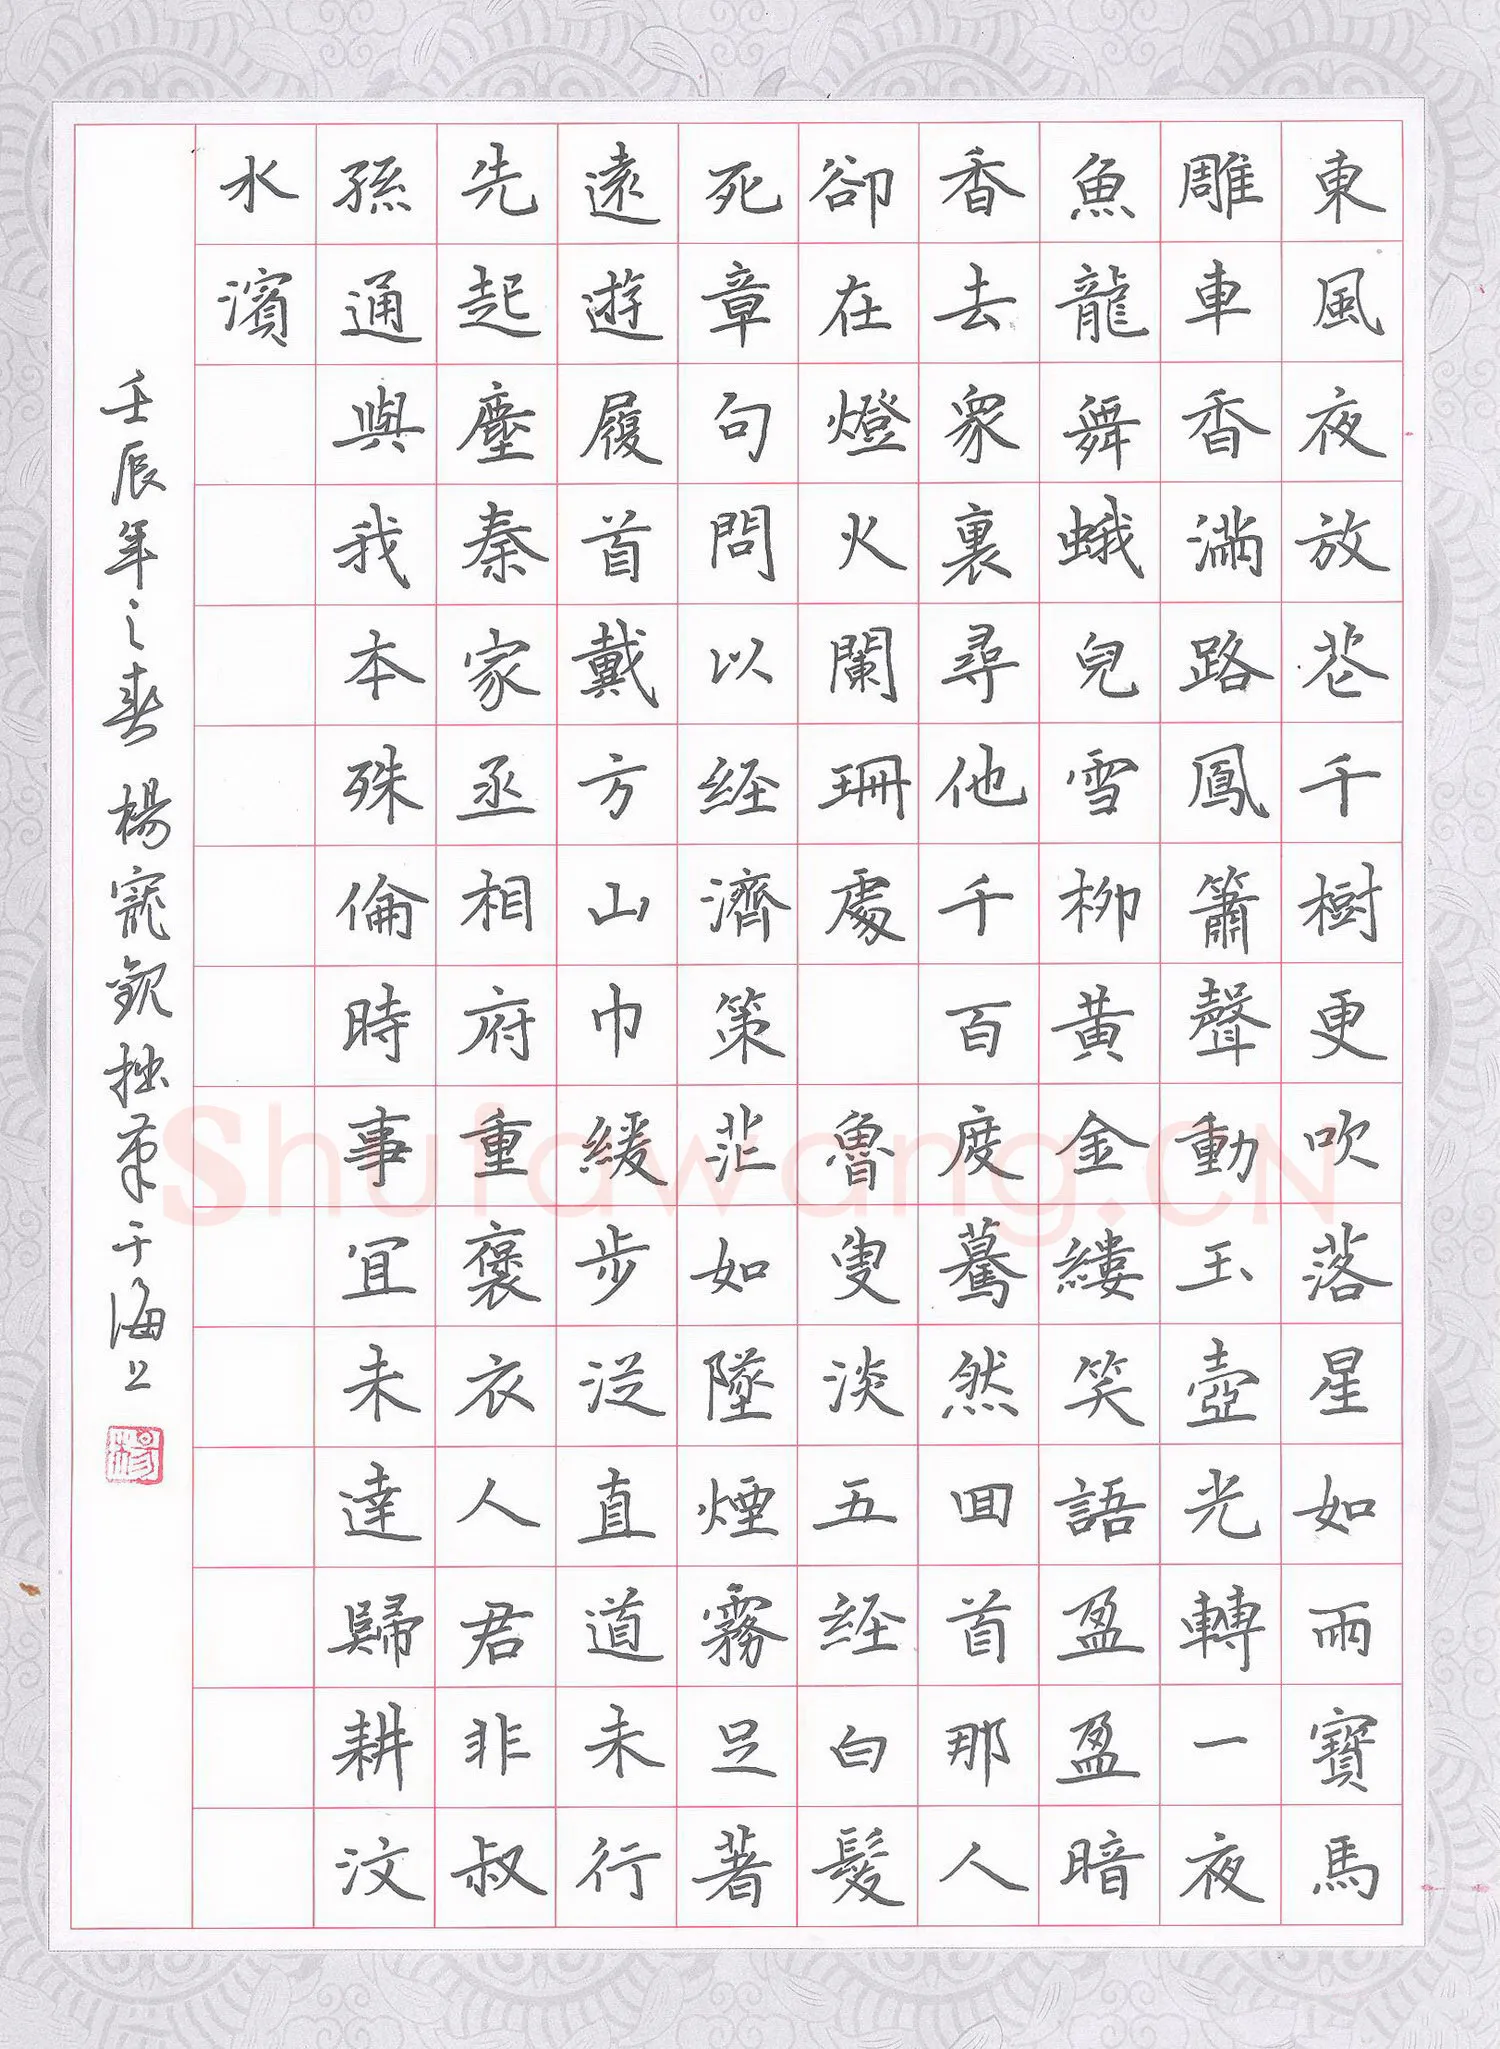 東風夜放花千樹更吹落星如雨寶馬
雕車香滿路鳳簫聲動玉壺光轉一夜
魚龍舞蛾兒雪柳黃金縷笑語盈盈暗
香去衆裏尋他千百度驀然回首那人
卻在燈火闌珊處 魯叟淡五經白髮
死章句問以經濟策茫如墜煙霧足著
遠遊履首戴方山巾緩步從直道未行
先起塵秦家丞相府重褒衣人君非叔
孫通與我本殊倫時事宜未達歸耕汶
水濱
壬辰年之春 楊寵欽拙筆于海上
楊
Shufawang.CN